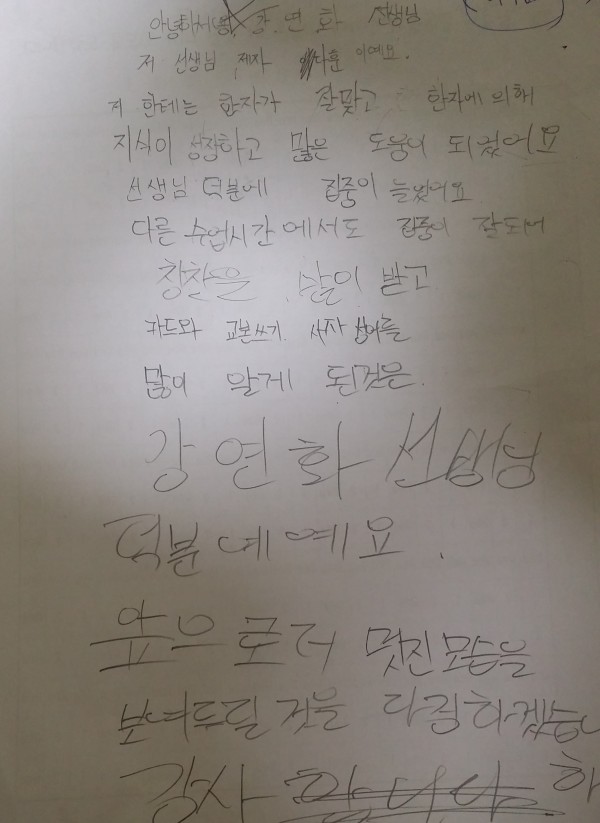 안녕하세요 강.연화 선생님
저 선생님 제자 다훈 이예요.
저 한테는 한자가 잘맞고 한자에 의해
지식이 성장하고 많은 도움이 되었어요
선생님 덕분에 집중이 늘었어요
다른 수업시간에서도 집중이 잘되어
칭찬을 많이 받고
카드와 교본쓰기. 사자성어를
많이 알게 된것은.
강연화 선생님
덕분에예요.
앞으로더 멋진모습을
보여두릴것을 다짐하겠습니
감사 합니다 하